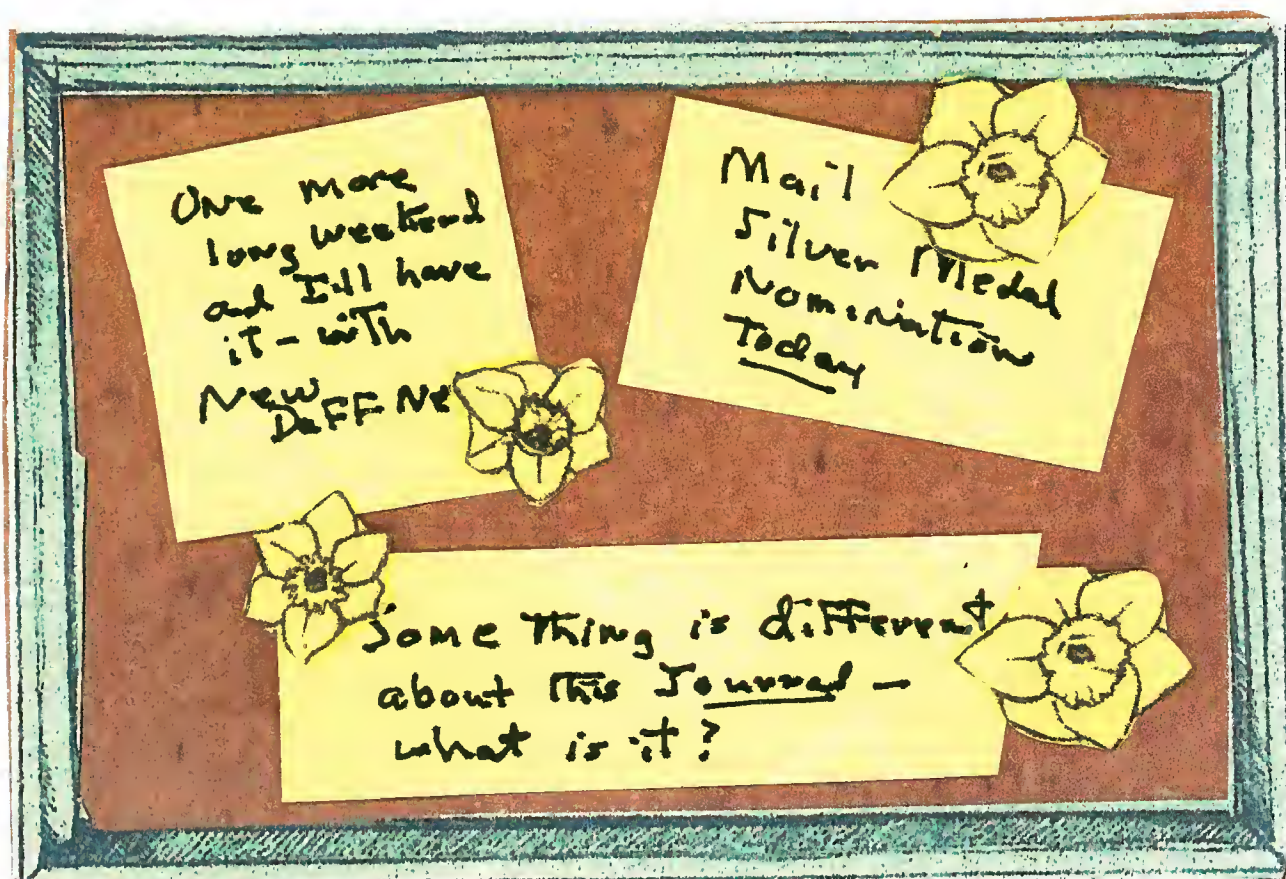 One more
long weekend
and I'll have
it - with
New
DaFFNet
Mail
Silver Medal
Nomination
Today
Some Thing is different
about this Journal –
what is it?